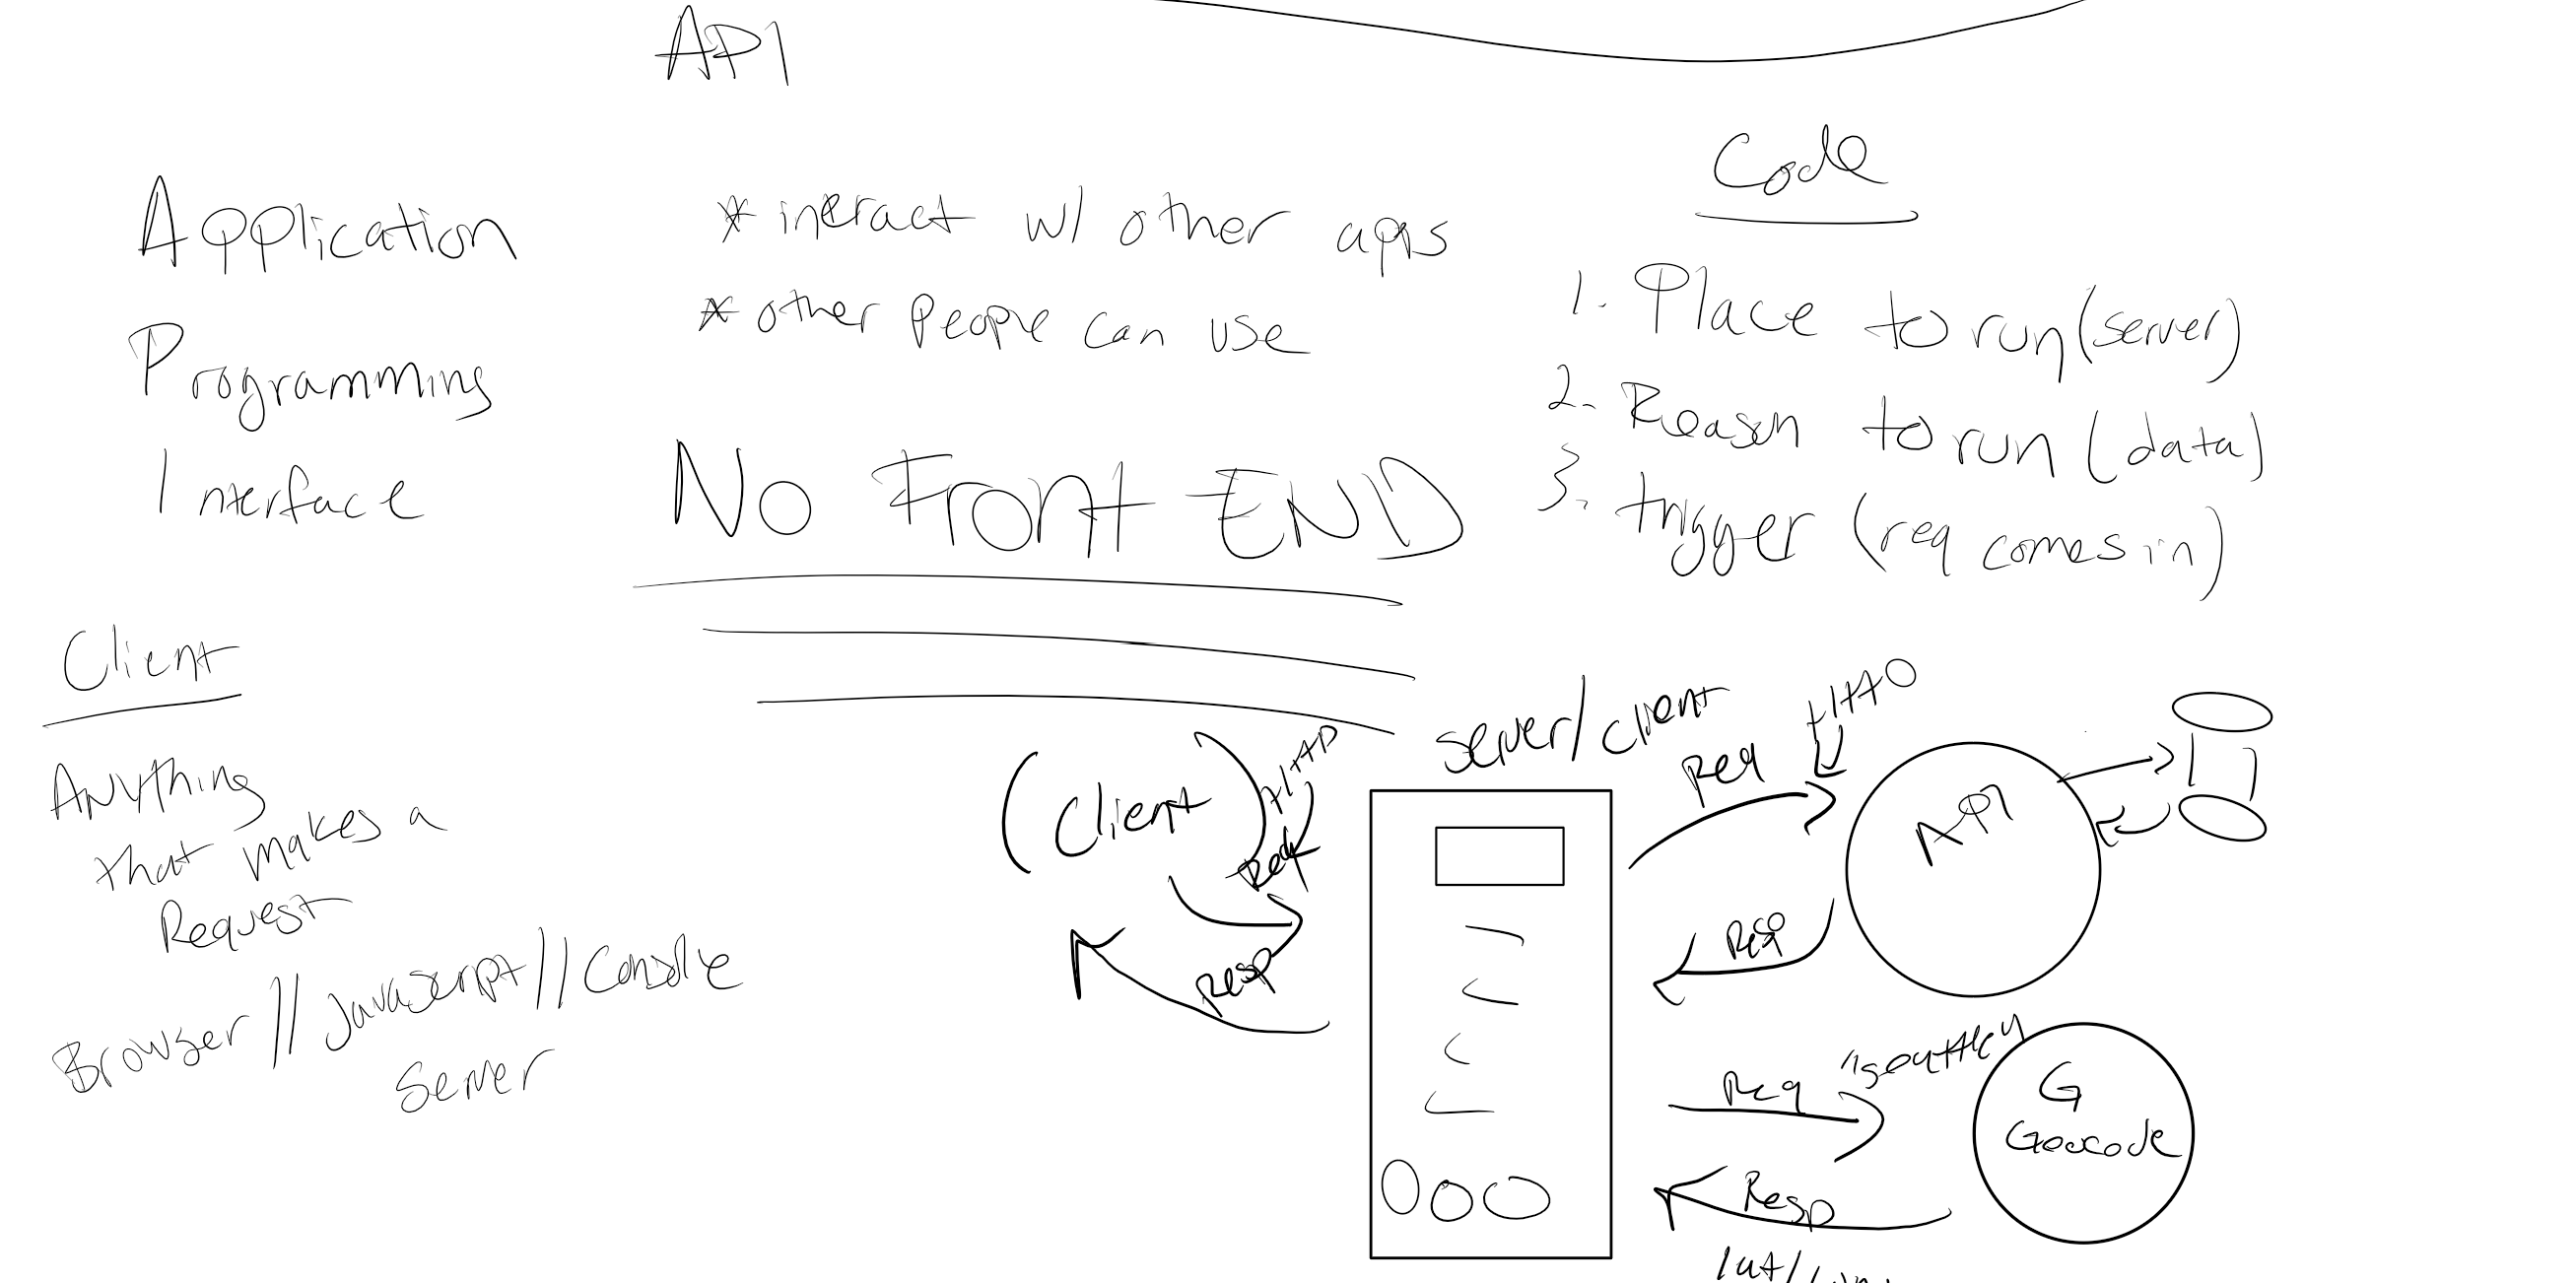 API
Application
Programming
Interface
* interact w/ other apps
* other people can use
No Front END
Code
1. Place to run (server)
2. Reason to run (data)
3. trigger (req comes in)
Client
Anything
that makes a
Request
Browser // Javascript // Console
Server
(Client)
Req
Resp
server/client
Req
API
Resp
Req
G
Geocode
Resp